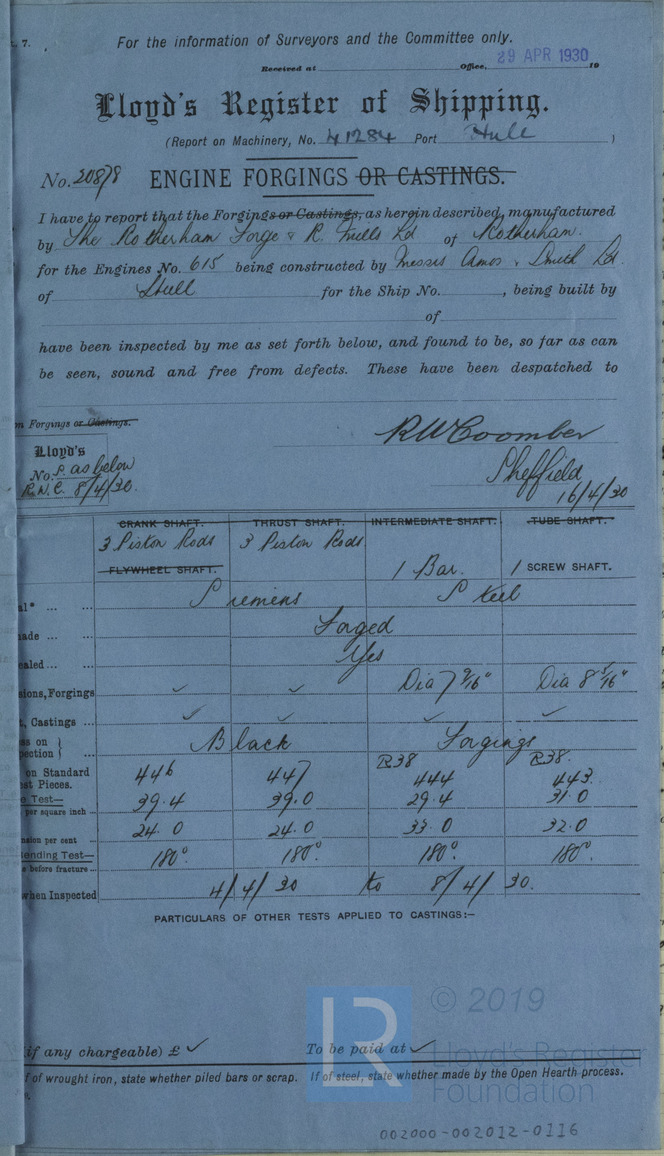 . 7.
For the information of Surveyors and the Committee only.
Received at Office, 29 APR 1930 19
Lloyd's Register of Shipping.
(Report on Machinery, No. 41284 Port Hull )
No. 20878 ENGINE FORGINGS OR CASTINGS.
I have to report that the Forgings or Castings, as herein described, manufactured
by The Rotherham Forge & R. Mills Ld of Rotherham.
for the Engines No. 615 being constructed by Messrs Amos & Smith Ld.
of Hull for the Ship No. , being built by
of
have been inspected by me as set forth below, and found to be, so far as can
be seen, sound and free from defects. These have been despatched to
n Forgings or Castings.
RW Coomber
Lloyd's
No. P. as below
R.W.C. 8/4/30.
Sheffield
16/4/30
CRANK SHAFT. THRUST SHAFT. INTERMEDIATE SHAFT. TUBE SHAFT.
3 Piston Rods 3 Piston Rods
FLYWHEEL SHAFT. 1 Bar. 1 SCREW SHAFT.
al* ... ... Siemens Steel
ade ... ... Forged
ealed ... ... Yes
sions, Forgings ✓ ✓ Dia 7 9/16" Dia 8 5/16"
t, Castings ... ✓ ✓ ✓ ✓
ss on
pection ... Black Forgings
R38 R38.
on Standard
st Pieces. 446 447 444 443.
e Test—
per square inch ... 39.4 39.0 29.4 31.0
nsion per cent ... 24.0 24.0 33.0 32.0
ending Test—
e before fracture ... 180°. 180°. 180°. 180°.
when Inspected 4/4/30 to 8/4/30.
PARTICULARS OF OTHER TESTS APPLIED TO CASTINGS:—
LR
© 2019
Lloyd's Register
Foundation
(if any chargeable) £ ✓ To be paid at ✓
f of wrought iron, state whether piled bars or scrap. If of steel, state whether made by the Open Hearth process.
002000-002012-0116